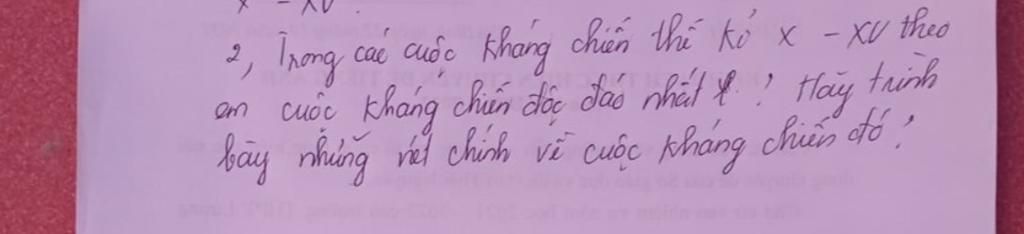 X - XV.
2, Trong các cuộc kháng chiến thế kỉ X - XV theo
em cuộc kháng chiến độc đáo nhất? Hãy trình
bày những nét chính về cuộc kháng chiến đó?